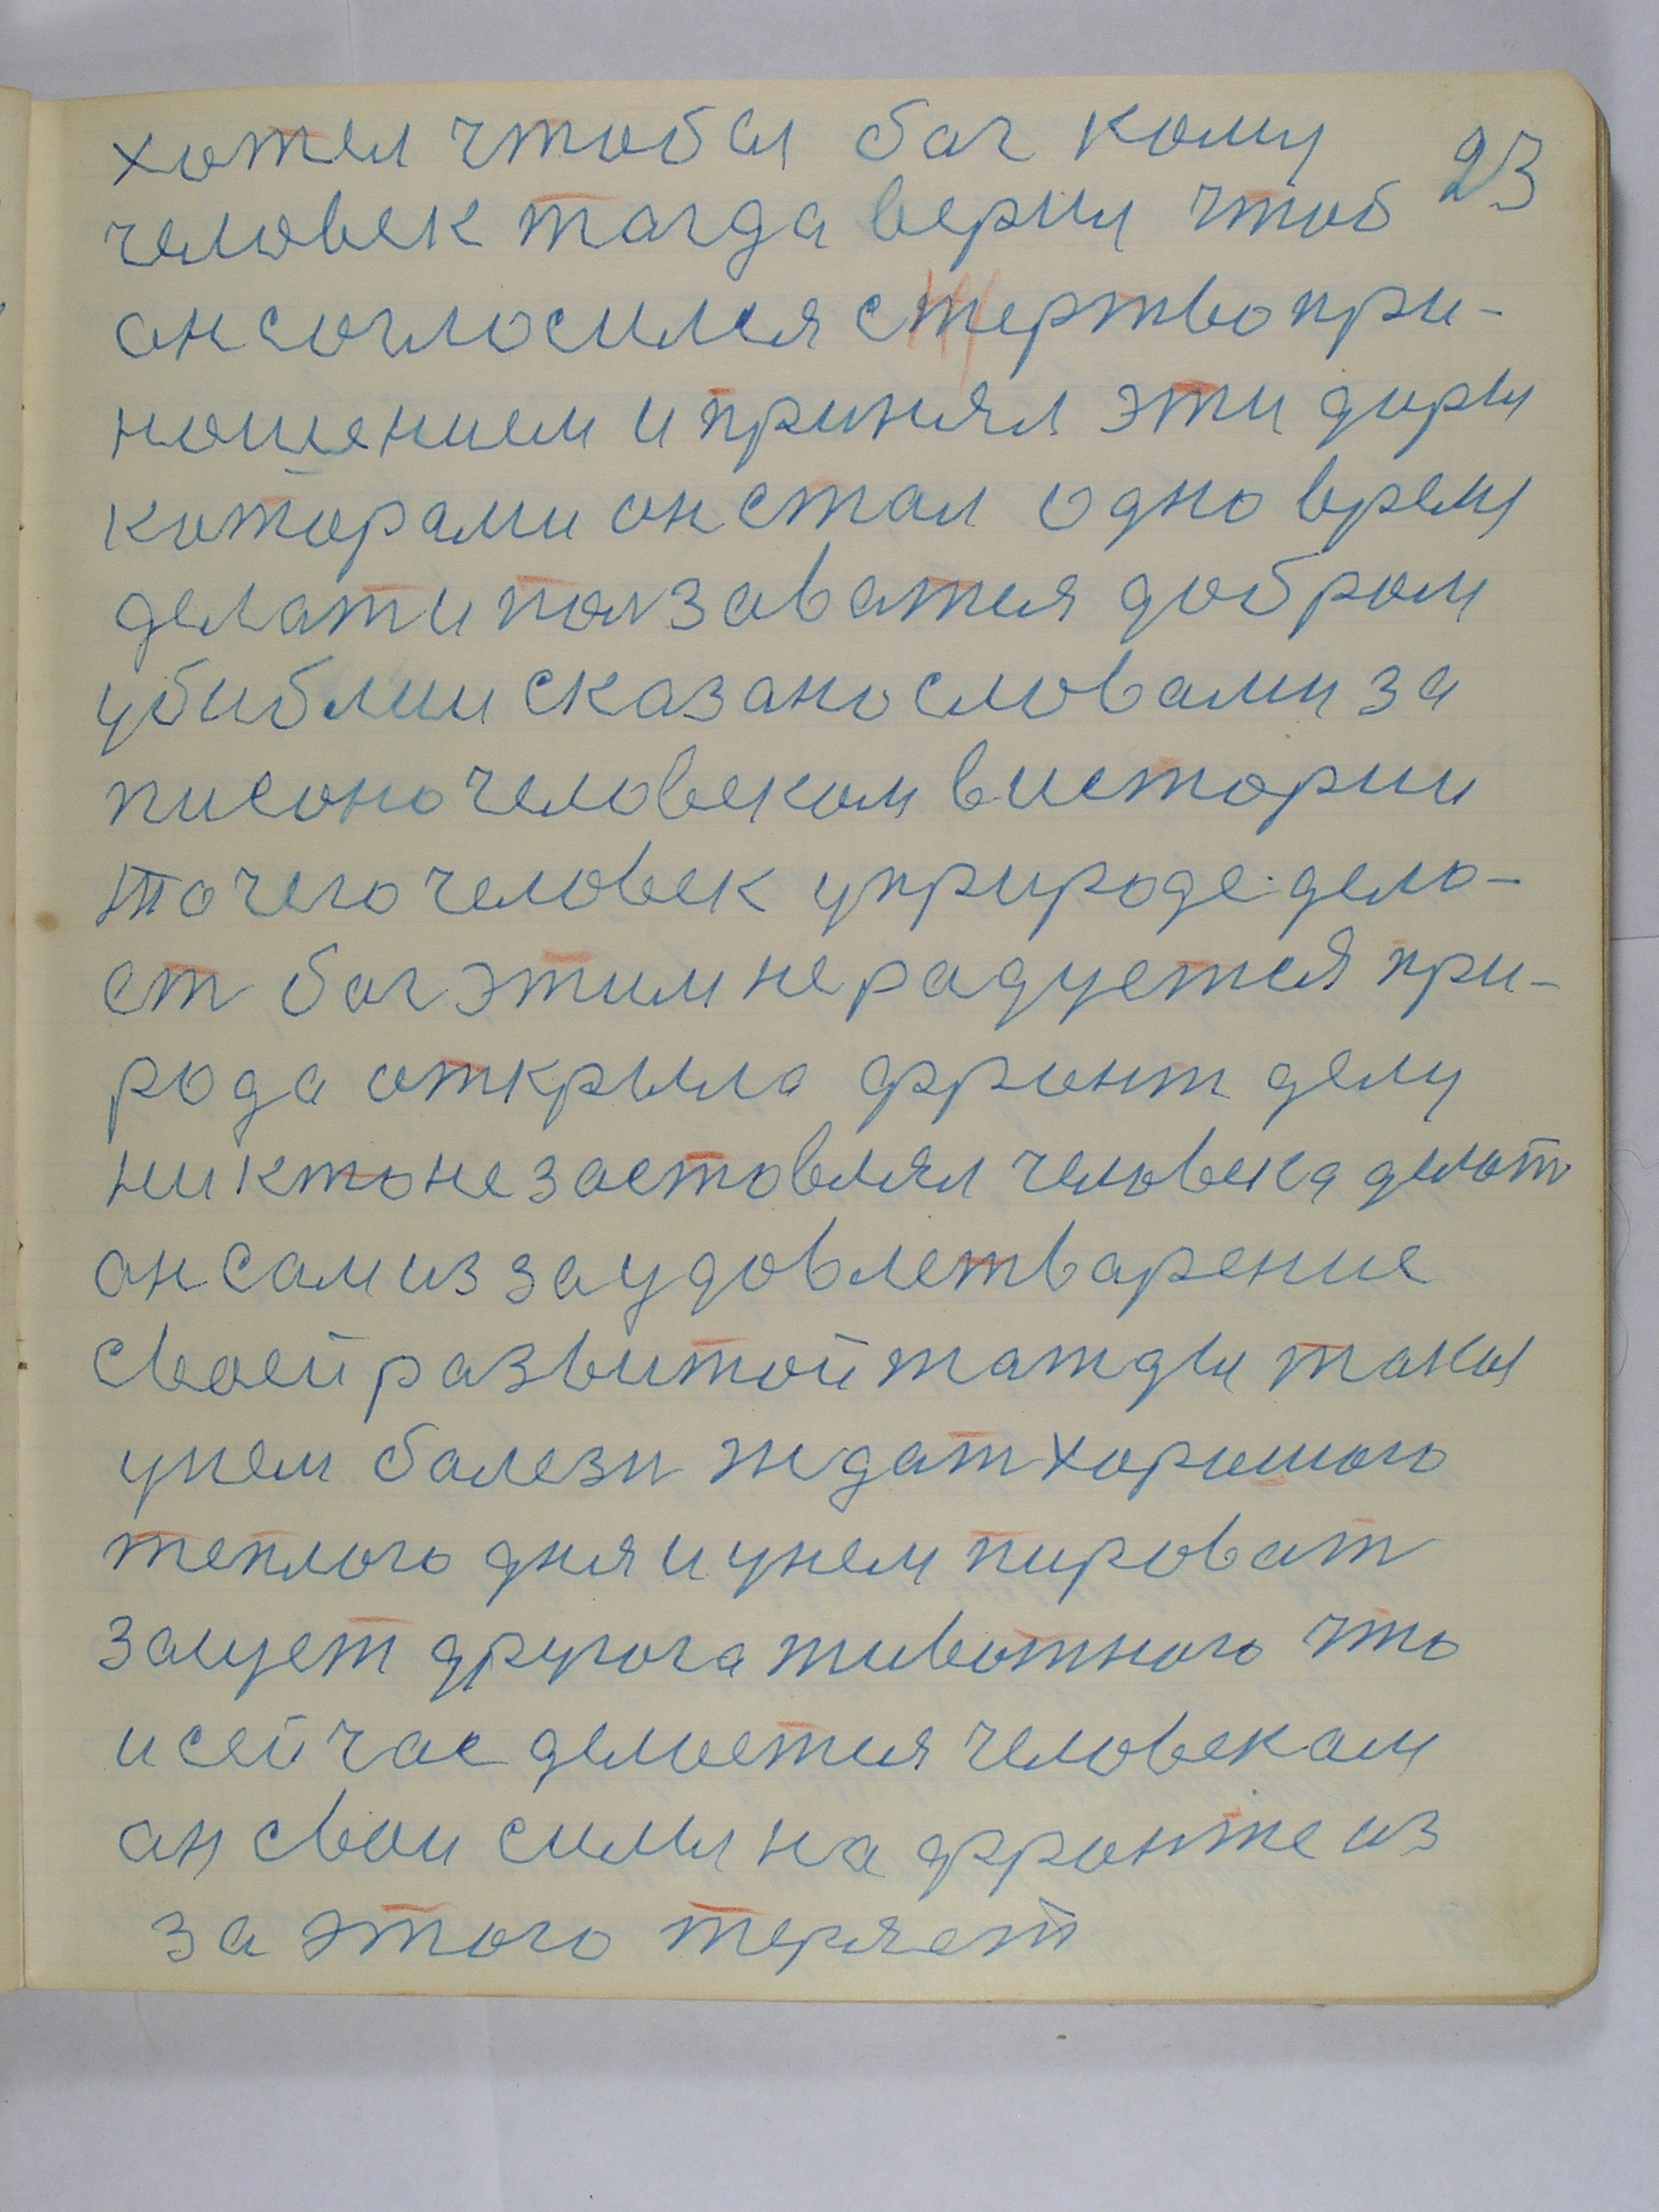 хотел чтобы бог кому 23
человек тагда верил чтоб
он согласился с жертвопри-
ношением и принял эти дары
каторами он стал одно время
делат и ползаватся добром
у библии сказано словами за
писано человеком в истории
то чего человек у природе дела-
ет бог этим не радуется при-
рода открыла фронт делу
никто не заставлял человека делат
он сам из за удовлетварение
своей развитой жажды такы
унем балезн ждат хорошого
теплого дня и унем пироват
заует другога животного что
и сейчас делается человекам
он свои силы на фронте из
за этого теряет